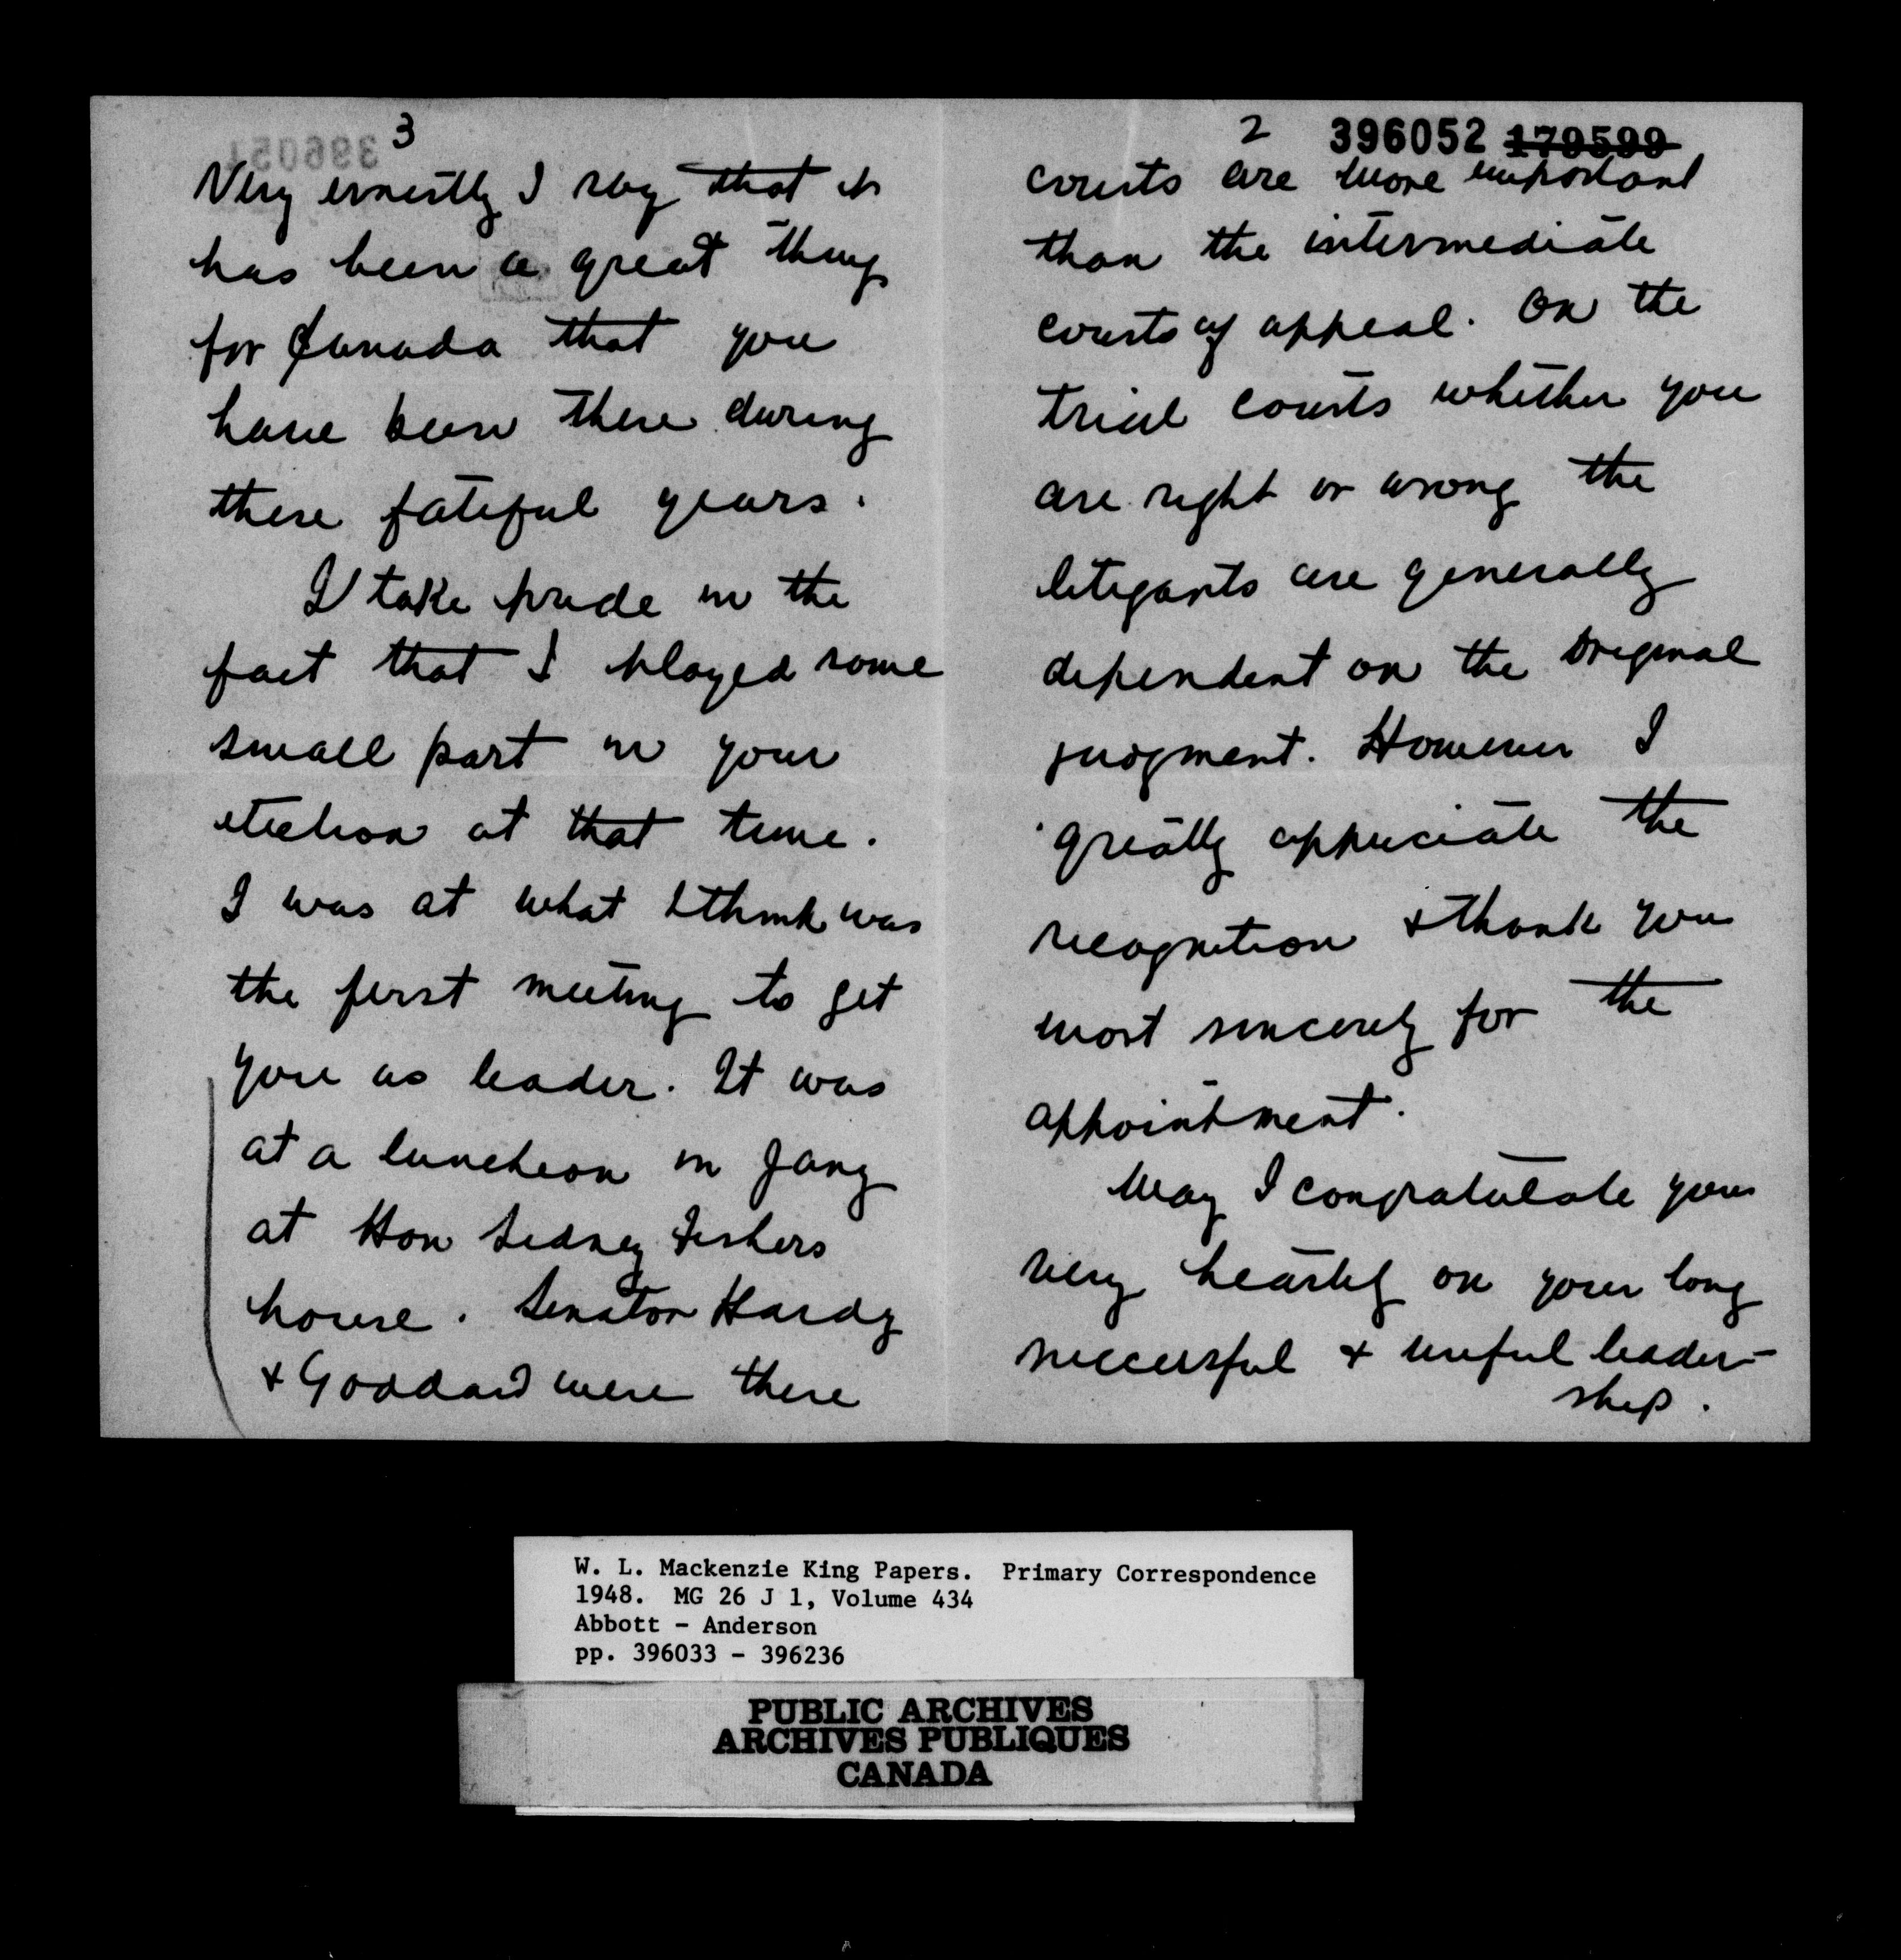 2 396052 179599
courts are more important
than the intermediate
courts of appeal. On the
trial courts whether you
are right or wrong the
litigants are generally
dependent on the original
judgment. However I
greatly appreciate the
recognition & thank you
most sincerely for the
appointment.
May I congratulate you
very heartily on your long
successful & useful leader-
ship.
3
396051
Very ernestly I say that it
has been a great thing
for Canada that you
have been there during
these fateful years.
I take pride in the
fact that I played some
small part in your
election at that time.
I was at what I think was
the first meeting to get
you as leader. It was
at a luncheon in Jany
at Hon Sidney Fishers
house. Senator Hardy
& Goddard were there
W. L. Mackenzie King Papers. Primary Correspondence
1948. MG 26 J 1, Volume 434
Abbott - Anderson
pp. 396033 - 396236
PUBLIC ARCHIVES
ARCHIVES PUBLIQUES
CANADA